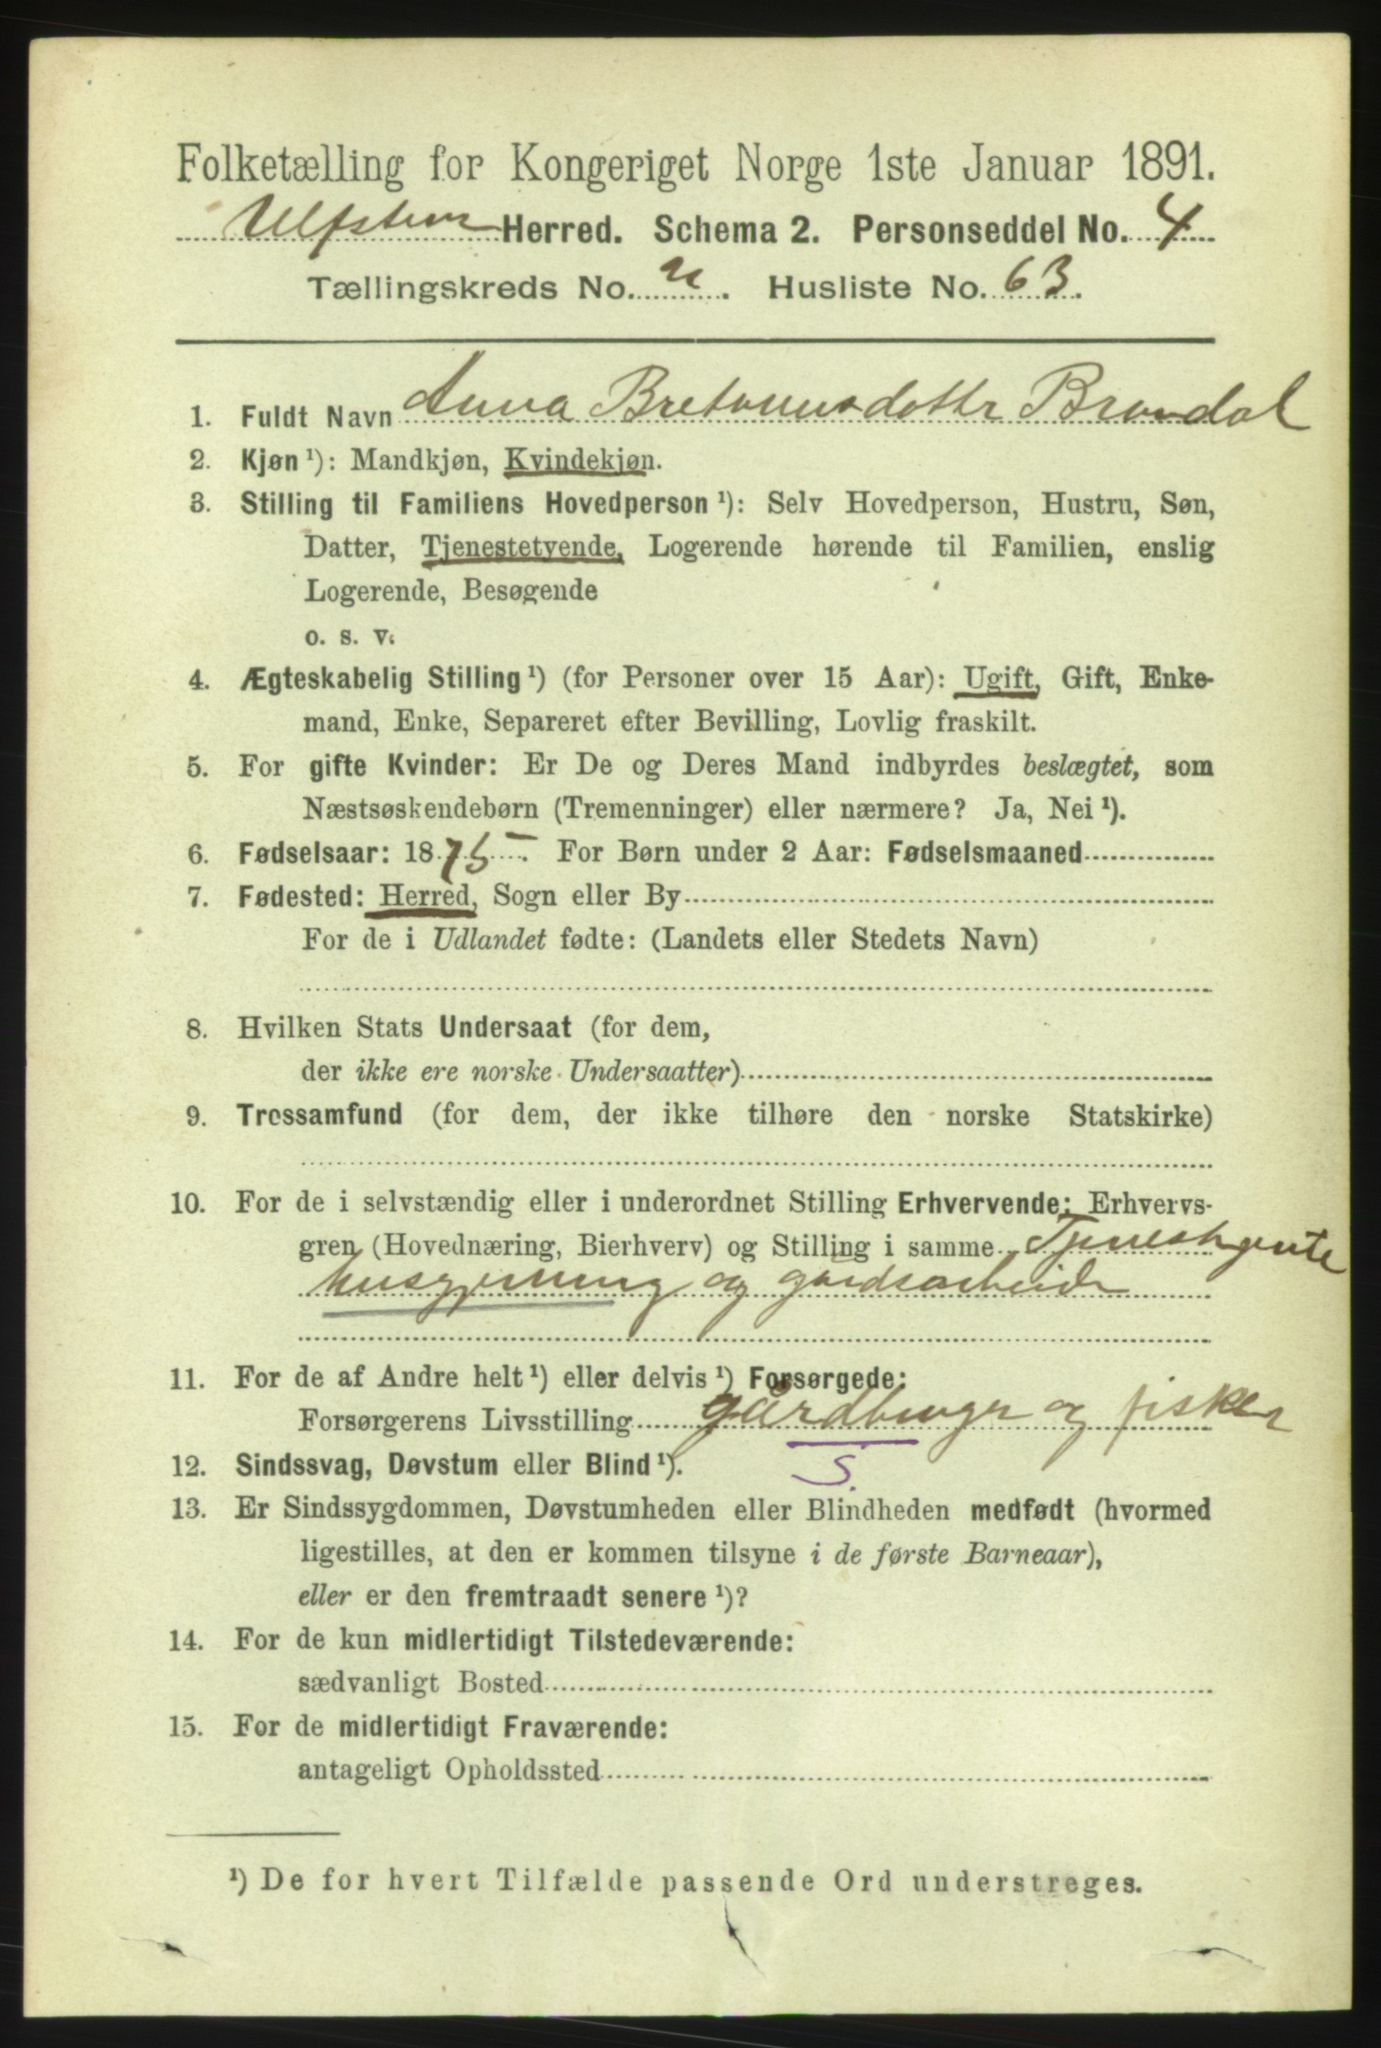 Folketælling for Kongeriget Norge 1ste Januar 1891.
Ulfsten Herred. Schema 2. Personseddel No. 4
Tællingskreds No. 2. Husliste No. 63.
1. Fuldt Navn Anna Bretonusdotter Brandal
2. Kjøn ¹): Mandkjøn, Kvindekjøn.
3. Stilling til Familiens Hovedperson ¹): Selv Hovedperson, Hustru, Søn,
Datter, Tjenestetyende, Logerende hørende til Familien, enslig
Logerende, Besøgende
o. s. v.
4. Ægteskabelig Stilling ¹) (for Personer over 15 Aar): Ugift, Gift, Enke-
mand, Enke, Separeret efter Bevilling, Lovlig fraskilt.
5. For gifte Kvinder: Er De og Deres Mand indbyrdes beslægtet, som
Næstsøskendebørn (Tremenninger) eller nærmere? Ja, Nei ¹).
6. Fødselsaar: 1875. For Børn under 2 Aar: Fødselsmaaned
7. Fødested: Herred, Sogn eller By
For de i Udlandet fødte: (Landets eller Stedets Navn)
8. Hvilken Stats Undersaat (for dem,
der ikke ere norske Undersaatter)
9. Trossamfund (for dem, der ikke tilhøre den norske Statskirke)
10. For de i selvstændig eller i underordnet Stilling Erhvervende: Erhvervs-
gren (Hovednæring, Bierhverv) og Stilling i samme Tjenestgente
husgjerning og gårdsarbeide
11. For de af Andre helt ¹) eller delvis ¹) Forsørgede:
Forsørgerens Livsstilling gårdbruger og fisker
12. Sindssvag, Døvstum eller Blind ¹). S.
13. Er Sindssygdommen, Døvstumheden eller Blindheden medfødt (hvormed
ligestilles, at den er kommen tilsyne i de første Barneaar),
eller er den fremtraadt senere ¹)?
14. For de kun midlertidigt Tilstedeværende:
sædvanligt Bosted
15. For de midlertidigt Fraværende:
antageligt Opholdssted
¹) De for hvert Tilfælde passende Ord understreges.